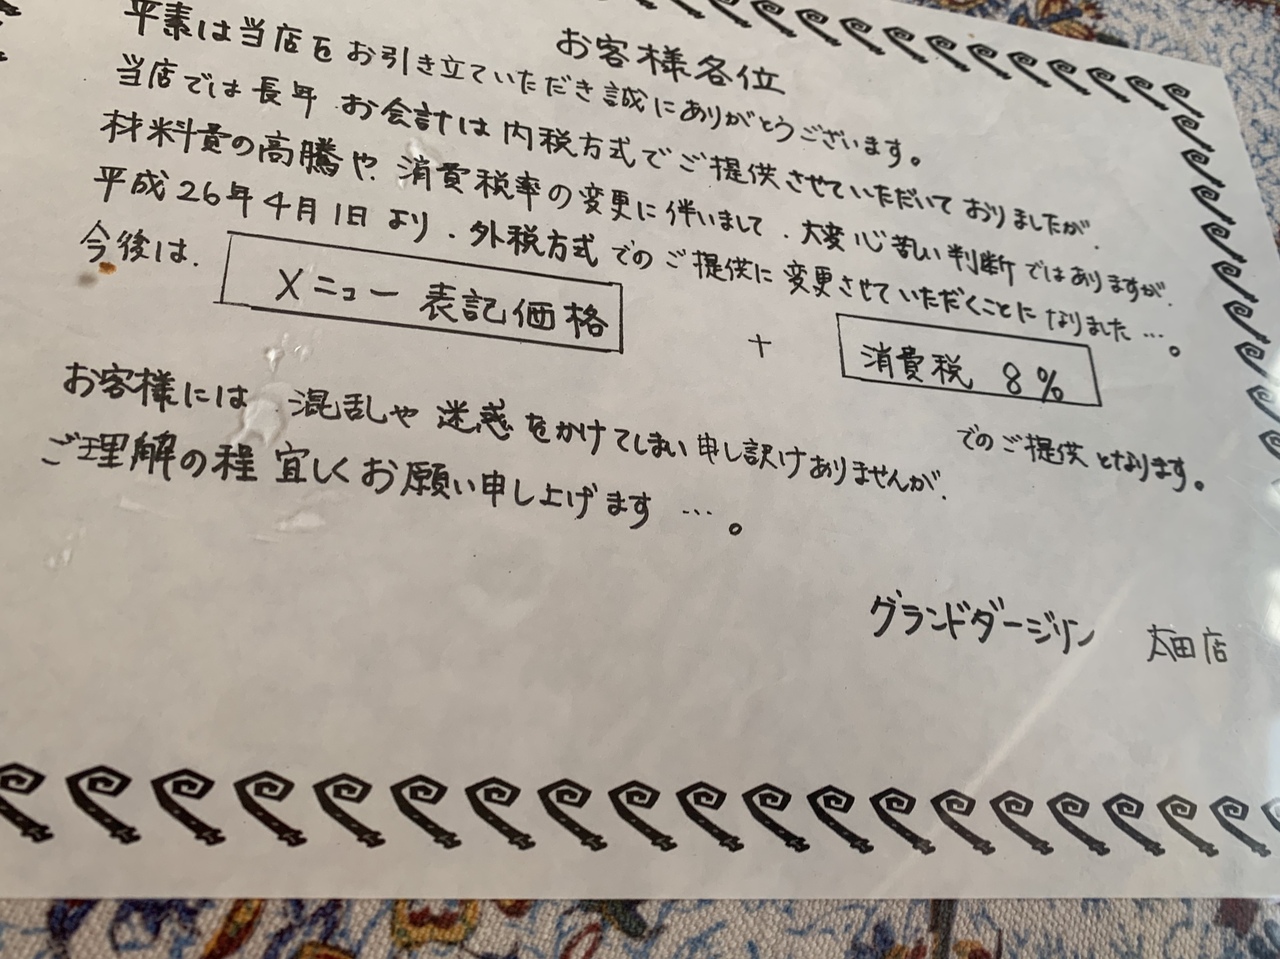 お客様各位
平素は当店をお引き立ていただき誠にありがとうございます。
当店では長年 お会計は内税方式でご提供させていただいておりましたが、
材料費の高騰や、消費税率の変更に伴いまして、大変心苦しい判断ではありますが、
平成26年4月1日より、外税方式でのご提供に変更させていただくことになりました…。
今後は、
メニュー表記価格 + 消費税 8%
でのご提供となります。
お客様には、混乱や迷惑をかけてしまい申し訳けありませんが、
ご理解の程 宜しくお願い申し上げます …。
グランドダージリン 太田店